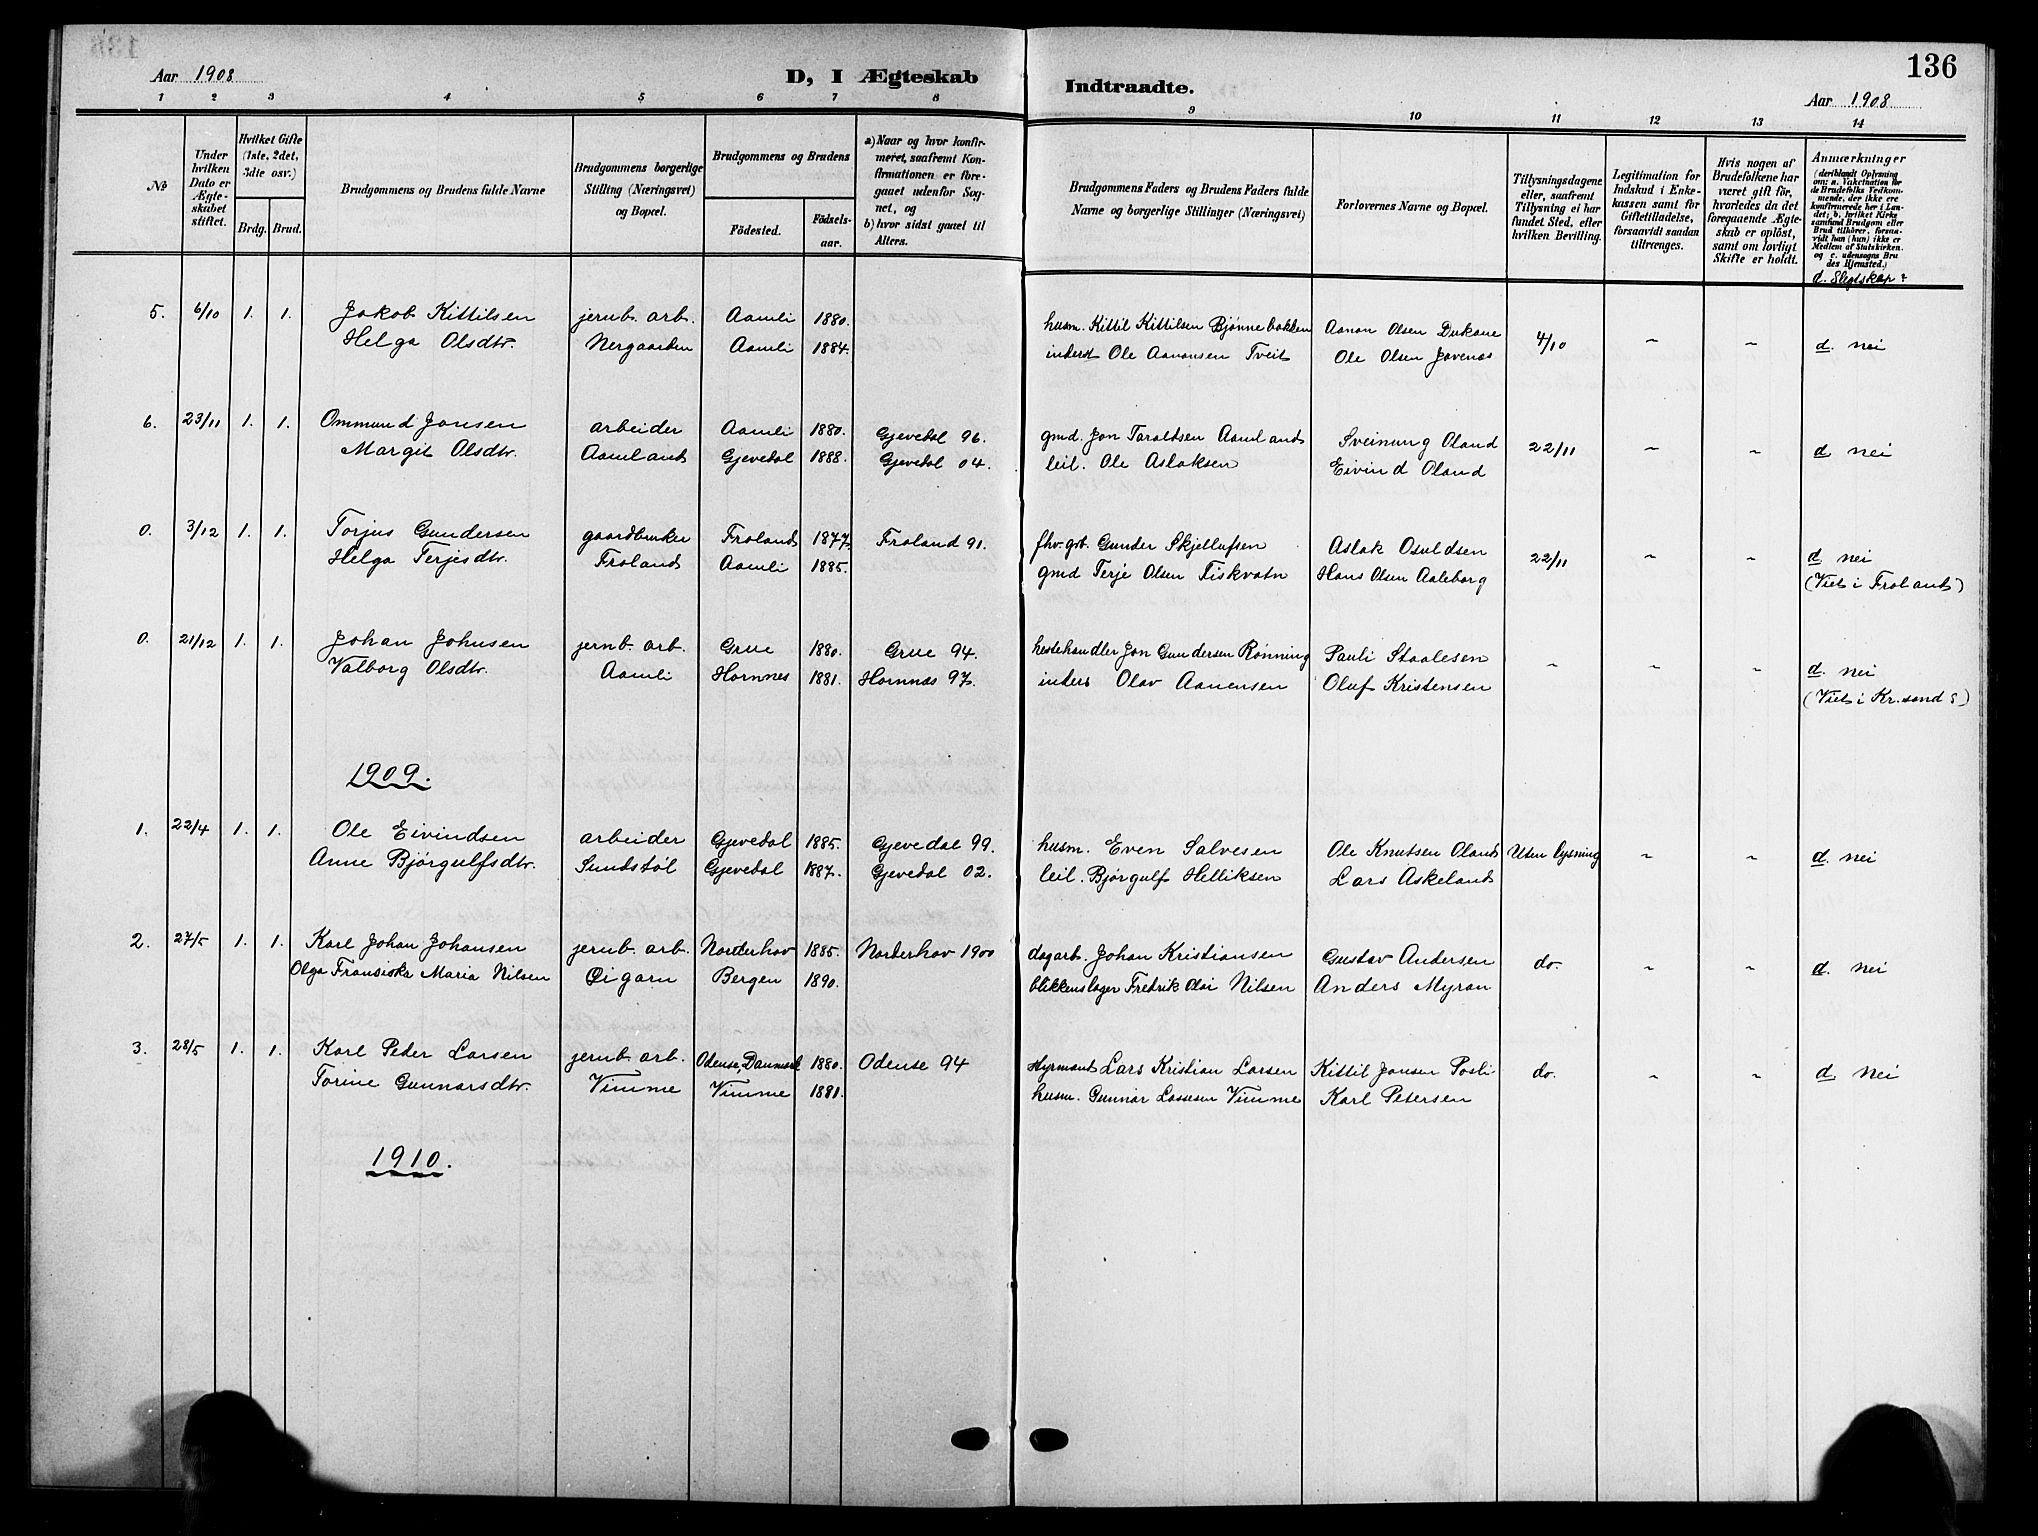 136
Aar 1908
D, I Ægteskab
Indtraadte.
Aar 1908
1 2 3 4 5 6 7 8 9 10 11 12 13 14
No
Under hvilken Dato er Ægteskabet stiftet.
Hvilket Gifte (1ste, 2det, 3die osv.)
Brdg. Brud.
Brudgommens og Brudens fulde Navne
Brudgommens borgerlige Stilling (Næringsvei) og Bopæl.
Brudgommens og Brudens
Födested.
Födsels-aar.
a) Naar og hvor konfirmeret, saafremt Konfirmationen er foregaaet udenfor Sognet, og
b) hvor sidst gaaet til Alters.
Brudgommens Faders og Brudens Faders fulde Navne og borgerlige Stillinger (Næringsvei)
Forlovernes Navne og Bopæl.
Tillysningsdagene eller, saafremt Tillysning ei har fundet Sted, efter hvilken Bevilling.
Legitimation for Indskud i Enkekassen samt for Giftetilladelse, forsaavidt saadan tiltrænges.
Hvis nogen af Brudefolkene har været gift för, hvorledes da det foregaaende Ægteskab er oplöst, samt om lovligt Skifte er holdt.
Anmærkninger
(deriblandt Oplysning om: a. Vakcination for de Brudefolks Vedkommende, der ikke ere konfirmerede her i Landet; b. hvilket Kirkesamfund Brudgom eller Brud tilhörer, forsaavidt han (hun) ikke er Medlem af Statskirken. og c. udensogns Brudes Hjemsted.)
d. Slegtskap?
5. 6/10 1. 1. Jakob Kittilsen jernb. arb. Aamli 1880. husm. Kittil Kittilsen Bjønnebakken Aanon Olsen Dukane 4/10 ~ ~ d. nei
Helga Olsdtr. Nergaarden Aamli 1884. inderst Ole Aanonsen Tveit Ole Olsen Jovenas
6. 23/11 1. 1. Ommund Jonsen arbeider Aamli 1880. Gjevedal 96. gmd. Jon Taraldsen Aamland Sveinung Oland 22/11 ~ ~ d nei
Margit Olsdtr. Aamland Gjevedal 1888. Gjevedal 04. leil. Ole Aslaksen Eivind Oland
0. 3/12 1. 1. Torjus Gundersen gaardbruker Froland 1877. Froland 91. fhv. grb. Gunder Skjellufsen Aslak Osuldsen 22/11 ~ ~ d nei
Helga Terjesdtr. Froland Aamli 1885. gmd Terje Olsen Fiskvatn Hans Olsen Aaleborg (Viet i Froland)
0. 21/12 1. 1. Johan Johnsen jernb. arb. Grue 1880. Grue 94. hestehandler Jon Gundersen Rønning Pauli Staalesen ~ ~ ~ d. nei
Valborg Olsdtr. Aamli Hornnes 1881. Hornnes 97. inders Olav Aanensen Oluf Kristensen (Viet i Kr.sand S)
1909.
1. 22/4 1. 1. Ole Eivindsen arbeider Gjevedal 1885. Gjevedal 99. husm. Even Salvesen Ole Knutsen Oland Uten lysning ~ ~ d. nei
Anne Bjørgulfsdtr. Sundstøl Gjevedal 1887. Gjevedal 02. leil. Bjørgulf Helliksen Lars Askeland
2. 27/5 1. 1. Karl Johan Johansen jernb. arb. Norderhov 1885. Norderhov 1900 dagarb. Johan Kristiansen Gustav Andersen do. ~ ~ d. nei
Olga Fransiska Maria Nilsen Øigarn Bergen 1890. blikkenslager Fredrik Olai Nilsen Anders Myran
3. 28/5 1. 1. Karl Peder Larsen jernb. arb. Odense, Danmark 1880. Odense 94 Hyrmand Lars Kristian Larsen Kittil Jonsen Posli do. ~ ~ d nei
Torine Gunnarsdtr. Vimme Vimme 1881. husm. Gunnar Lassesen Vimme Karl Petersen
1910.